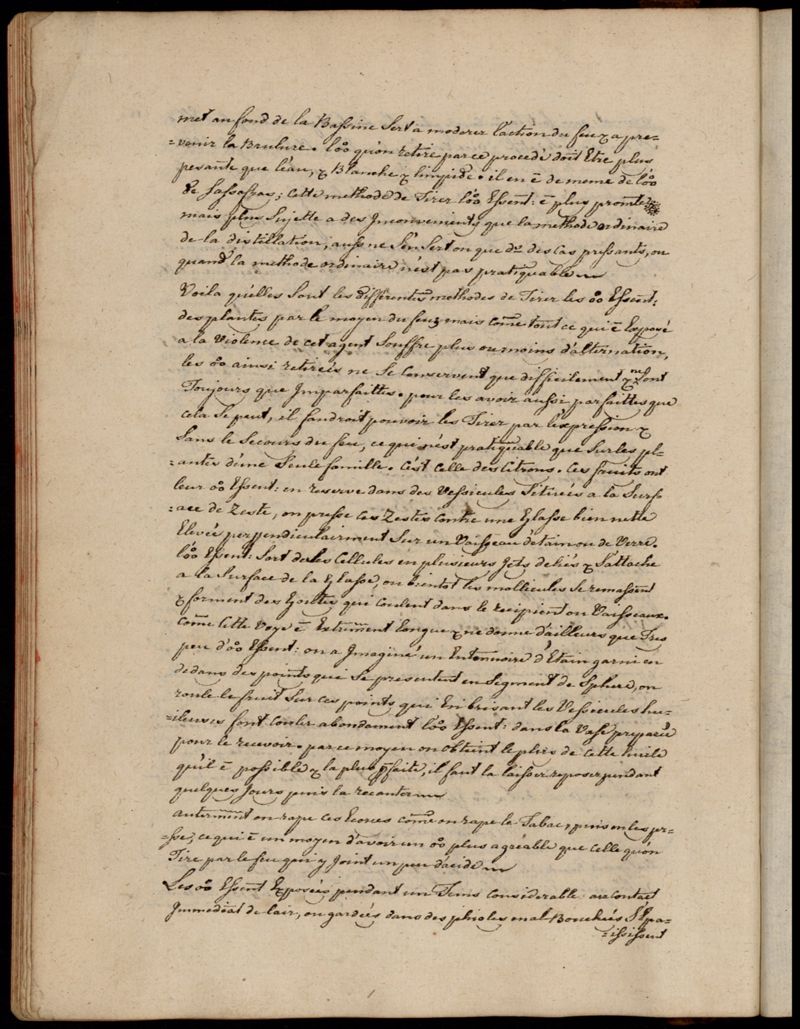 met au fond de la Bassine sert a moderer l'action du feu & a pre-
=venir la Brulure. l'oo qu'on retire par ce procedé doit Etre plus
pesante que l'eau, & Blanche & limpide. il en ē de meme de l'oo
de Sassafras; cette methode de Tirer l'oo Essent: ē plus promte
mais plus Sujette a des Inconvenients que la methode ordinaire
de la distillation, aussi ne s'en sert on que ds des Cas pressants, ou
quand la methode ordinaire n'est pas pratiquable
Voila quelles sont les differentes methodes de Tirer les oo Essent:
des plantes par le moyen du feu; mais come tout ce qui ē Exposé
a la Violence de cet agent Souffre plus ou moins d'alternation,
les oo ainsi retirées ne Se Conservent que difficilement & ne sont
Toujours que Imparfaittes. pour les avoir aussi parfaittes que
cela Se peut, il faudroit pouvoir les Tirer par l'expression &
Sans le Secours du feu, ce qui n'est pratiquable que Sur les pl-
=antes d'une Seule famille. C'est celle des Citrons. Ces fruits ont
leur oo Essent: en reserve dans des Vessicules Sitüées a la Surf-
=ace de Zeste, on presse ces Zestes Contre une Glasse bien nette
Elevée perpendiculairment Sur un Vaisseau d'etain ou de Verre.
l'oo Essent: Sort de les Cellules en plusieurs Jets deliés & S'attache
a la Surface de la Glasse, ou bientot les mollicules Se remassent
& forment des Gouttes qui Coulent dans le recipient ou Vaisseaux.
Come Cette Voye ē Extremment longue & ne donne d'ailleurs que Tres
peu d'oo Essent: on a Imaginé un Entonnoire d'Etain garni en
dedans des points qui Se presentent en Segment de Sphere, on
roule le fruit Sur ces points qui En brisant les Vessicules hu-
=ileuses font Couler abondament l'oo Essent: dans la Vase preparée
pour le recevoir. par ce moyen on obtient le plus de cette huile
qu'il ē possible & la plus pfaite, il faut la laisser reposer pendant
quelques Jours puis la decanter
autremment on rape ces Ecorces come on rape le Tabac, puis on les pr-
=sse; ce qui ē un moyen d'avoir un oo plus agréable que celle qu'on
Tire par le feu qui y Joint un peu d'acide
Les oo Essent Exposées pendant un Tems Considerable au Contact
Immediat de l'air, ou gardées dans des phioles mal Bouchées S'Epa-
=ississent